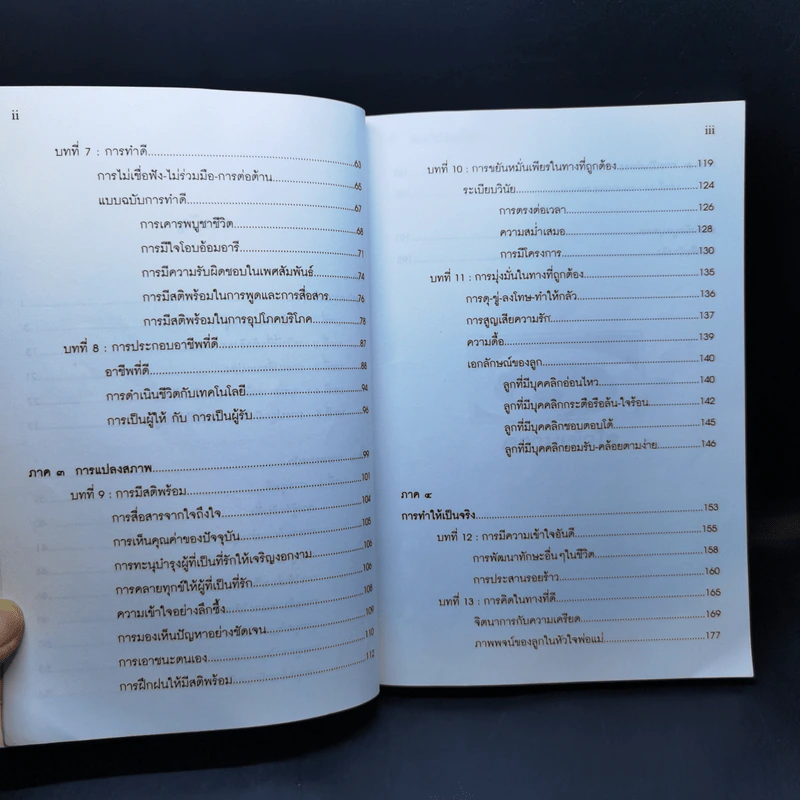 ii
บทที่ 7 : การทำดี.....63
การไม่เชื่อฟัง-ไม่ร่วมมือ-การต่อต้าน.....65
แบบฉบับการทำดี.....67
การเคารพบูชาชีวิต.....68
การมีใจโอบอ้อมอารี.....71
การมีความรับผิดชอบในเพศสัมพันธ์.....74
การมีสติพร้อมในการพูดและการสื่อสาร.....76
การมีสติพร้อมในการอุปโภคบริโภค.....78
บทที่ 8 : การประกอบอาชีพที่ดี.....87
อาชีพที่ดี.....88
การดำเนินชีวิตกับเทคโนโลยี.....94
การเป็นผู้ให้ กับ การเป็นผู้รับ.....96
ภาค ๓ การแปลงสภาพ.....99
บทที่ 9 : การมีสติพร้อม.....101
การสื่อสารจากใจถึงใจ.....104
การเห็นคุณค่าของปัจจุบัน.....105
การทะนุบำรุงผู้ที่เป็นที่รักให้เจริญงอกงาม.....106
การคลายทุกข์ให้ผู้ที่เป็นที่รัก.....106
ความเข้าใจอย่างลึกซึ้ง.....108
การมองเห็นปัญหาอย่างชัดเจน.....109
การเอาชนะตนเอง.....110
การฝึกฝนให้มีสติพร้อม.....112
iii
บทที่ 10 : การขยันหมั่นเพียรในทางที่ถูกต้อง.....119
ระเบียบวินัย.....124
การตรงต่อเวลา.....126
ความสม่ำเสมอ.....128
การมีโครงการ.....130
บทที่ 11 : การมุ่งมั่นในทางที่ถูกต้อง.....135
การดุ-ขู่-ลงโทษ-ทำให้กลัว.....136
การสูญเสียความรัก.....137
ความดื้อ.....139
เอกลักษณ์ของลูก.....140
ลูกที่มีบุคคลิกอ่อนไหว.....140
ลูกที่มีบุคคลิกกระตือรือล้น-ใจร้อน.....142
ลูกที่มีบุคคลิกชอบตอบโต้.....145
ลูกที่มีบุคคลิกยอมรับ-คล้อยตามง่าย.....146
ภาค ๔
การทำให้เป็นจริง.....153
บทที่ 12 : การมีความเข้าใจอันดี.....155
การพัฒนาทักษะอื่นๆในชีวิต.....158
การประสานรอยร้าว.....160
บทที่ 13 : การคิดในทางที่ดี.....165
จิตนาการกับความเครียด.....169
ภาพพจน์ของลูกในหัวใจพ่อแม่.....177